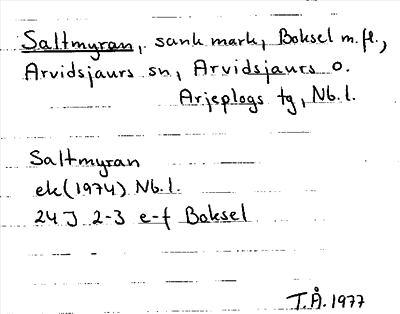 Saltmyran, sank mark, Boksel m.fl.,
Arvidsjaurs sn, Arvidsjaurs o.
Arjeplogs tg, Nb.l.
Saltmyran
ek (1974) Nb.l.
24J 2-3 e-f Boksel
T.Å. 1977